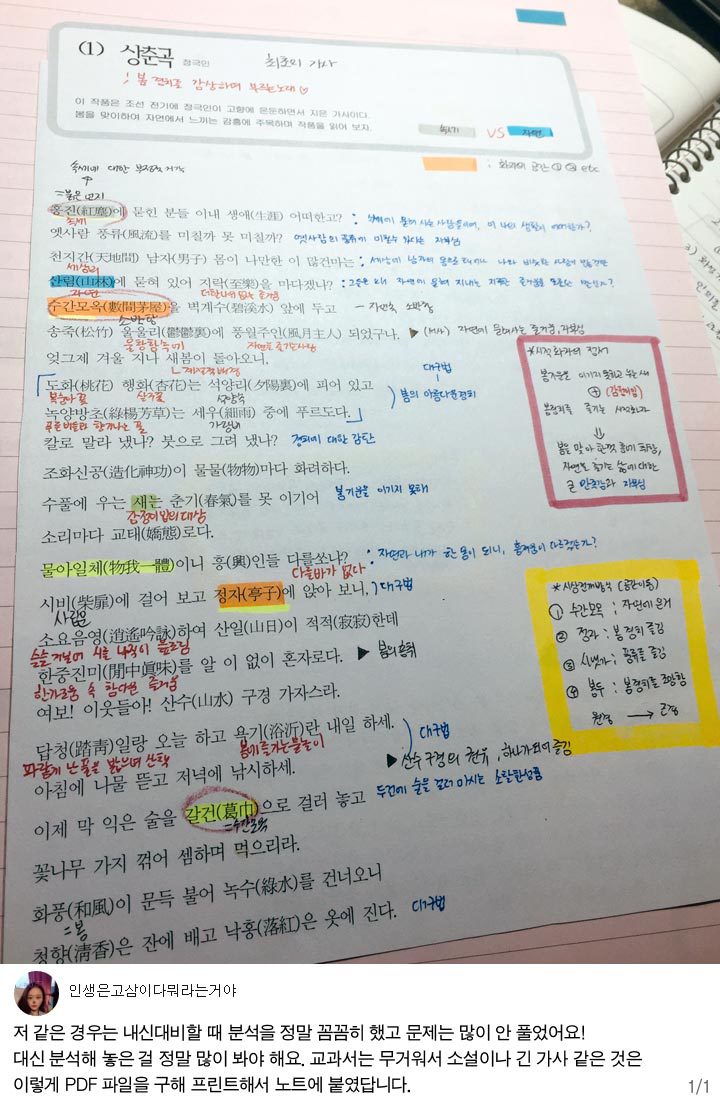 (1) 상춘곡 정극인 최초의 가사
! 봄 경치를 감상하며 부르는 노래♡
이 작품은 조선 전기에 정극인이 고향에 은둔하면서 지은 가사이다.
봄을 맞이하여 자연에서 느끼는 감흥에 주목하며 작품을 읽어 보자.
속세 VS 자연
: 화자의 공간 ①②③ etc
속세에 대한 부정적 거리감
=붉은 먼지
홍진(紅塵)에 묻힌 분들 이내 생애(生涯) 어떠한고?
속세
옛사람 풍류(風流)를 미칠까 못 미칠까?
천지간(天地間) 남자(男子) 몸이 나만한 이 많건마는
세상에
산림(山林)에 묻혀 있어 지락(至樂)을 마다겠나?
자연
수간모옥(數間茅屋)을 벽계수(碧溪水) 앞에 두고 - 자연속 소박함
소박함
송죽(松竹) 울울리(鬱鬱裏)에 풍월주인(風月主人) 되었구나.
울창함 속에 자연을 즐기는 사람
엊그제 겨울 지나 새봄이 돌아오니,
ㄴ계절적 배경
도화(桃花) 행화(杏花)는 석양리(夕陽裏)에 피어 있고
복숭아꽃 살구꽃 석양속
대구법
봄의 아름다운 경치
녹양방초(綠楊芳草)는 세우(細雨) 중에 푸르도다.
가랑비
칼로 말라 냈나? 붓으로 그려 냈나? 경치에 대한 감탄
조화신공(造化神功)이 물물(物物)마다 화려하다.
수풀에 우는 새는 춘기(春氣)를 못 이기어 봄기운을 이기지 못해
감정이입의 대상
소리마다 교태(嬌態)로다.
물아일체(物我一體)이니 흥(興)인들 다를쏘냐? : 자연과 내가 한 몸이 되니, 흥겨움이 다르겠는가?
다를바가 없다
시비(柴扉)에 걸어 보고 정자(亭子)에 앉아 보니, 대구법
사립문
소요음영(逍遙吟詠)하여 산일(山日)이 적적(寂寂)한데
슬슬 거닐며 시를 나직이 읊조림
한중진미(閒中眞味)를 알 이 없이 혼자로다. ▶ 봄의 흥취
한가로움 속 참다운 즐거움
여보! 이웃들아! 산수(山水) 구경 가자스라.
답청(踏靑)일랑 오늘 하고 욕기(浴沂)란 내일 하세.
대구법
파랗게 난 풀을 밟으며 산책
아침에 나물 뜯고 저녁에 낚시하세.
▶ 산수 구경의 권유, 하나가 되어 즐김
이제 막 익은 술을 갈건(葛巾)으로 걸러 놓고 두건에 술을 걸러 마시는 소탈한 성품
=수간모옥
꽃나무 가지 꺾어 셈하며 먹으리라.
화풍(和風)이 문득 불어 녹수(綠水)를 건너오니
=봄
청향(淸香)은 잔에 배고 낙홍(落紅)은 옷에 진다. 대구법
*시적 화자의 전개
봄기운을 이기지 못하고 우는 새
⊕ (감정이입)
봄경치를 즐기는 시적화자
⇓
자연을 즐기는 삶에 대한
큰 만족감과 자부심
*시상전개방식 (공간이동)
① 수간모옥 : 자연에 은거
② 정자 : 봄경치 즐김
③ 시냇가 : 풍류를 즐김
④ 봉수 : 봄경치를 조망함
원경 → 근경
인생은고삼이다뭐라는거야
저 같은 경우는 내신대비할 때 분석을 정말 꼼꼼히 했고 문제는 많이 안 풀었어요!
대신 분석해 놓은 걸 정말 많이 봐야 해요. 교과서는 무거워서 소설이나 긴 가사 같은 것은
이렇게 PDF 파일을 구해 프린트해서 노트에 붙였답니다.
1/1